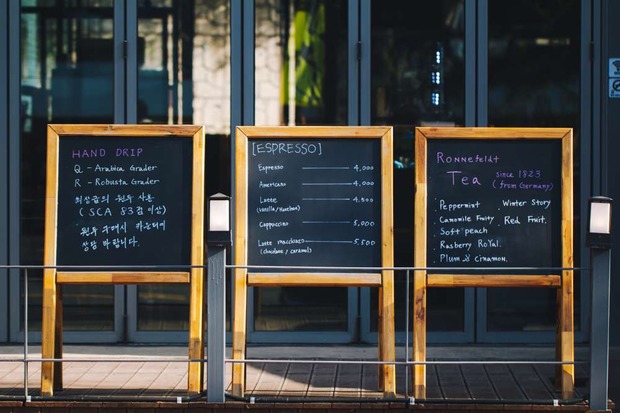 HAND DRIP
Q - Arabica Grader
R - Robusta Grader
최상급의 원두 사용
( SCA 83점 이상)
원두 구매시 카운터에
상담 바랍니다.
[ESPRESSO]
Espresso 4,000
Americano 4,000
Latte 4,500
(vanilla/Hazelnut)
Cappuccino 5,000
Latte macchiato 5,500
(chocolate / caramel)
Ronnefeldt
Tea since 1823
(from Germany)
Peppermint . Winter Story
. Camomile Fruity . Red Fruit.
. Soft peach
. Rasberry Royal.
. Plum & Cinnamon.